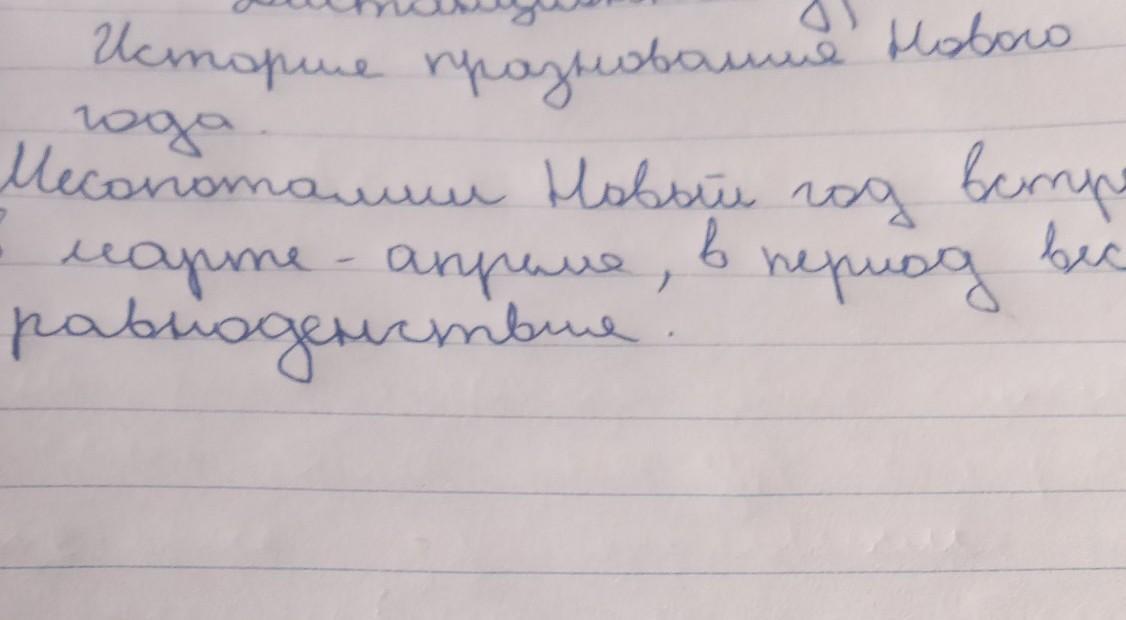 История празнования Нового
года.
Месопотамии Новый год встр
марте - апреле, в период вес
равноденствия.